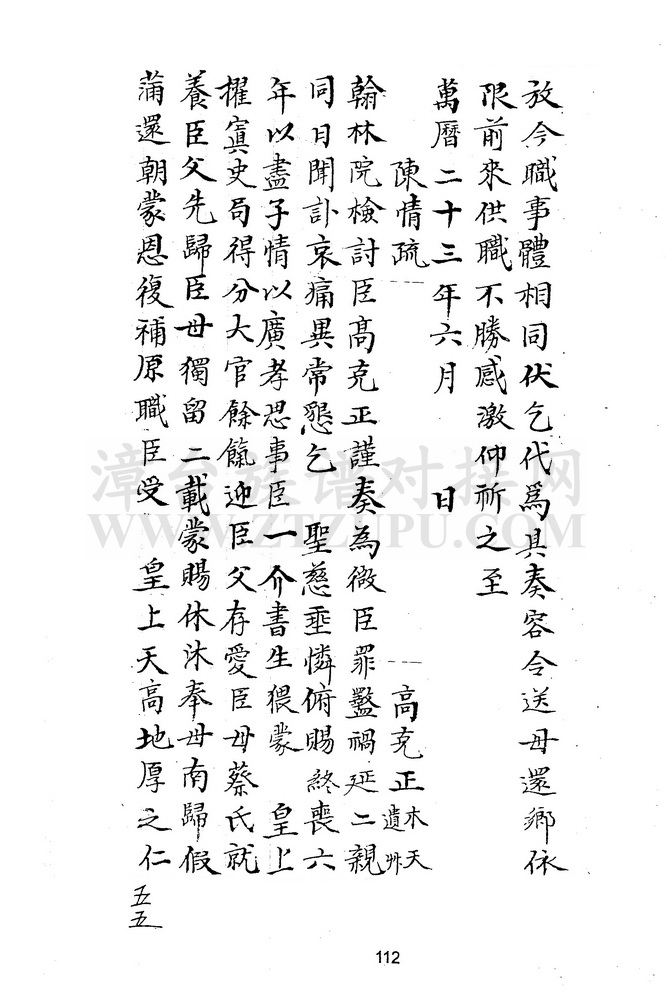 放今職事體相同伏乞代爲具奏容令送母還鄉依
限前來供職不勝感激仰祈之至
萬曆二十三年六月 日
陳情疏 高克正木天遺艸
翰林院檢討臣高克正謹奏為微臣罪盭禍延二親
同日聞訃哀痛異常懇乞 聖慈垂憐俯賜終喪六
年以盡子情以廣孝思事臣一介書生猥蒙 皇上
擢寘史局得分大官餘餼迎臣父存愛臣母蔡氏就
養臣父先歸臣母獨留二載蒙賜休沐奉母南歸假
蒲還朝蒙恩復補原職臣受 皇上天高地厚之仁
五五
漳台族谱对接网
WWW.ZTZUPU.COM
112